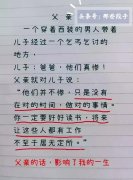 头条号：那些段子
父亲
一个穿着西装的男人带着
儿子经过一个乞丐乞讨的
地方，
儿子：爸爸，他们真惨！
父亲就对儿子说：
“他们并不惨，只是没有
在对的时间，做对的事情。
你一定要好好读书，将来
让这些人都有工作
不至于居无定所。”
父亲的话，影响了我的一生